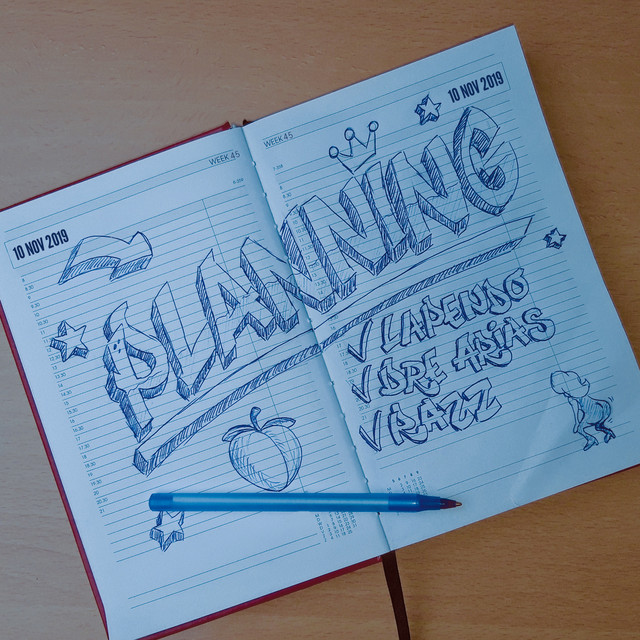 WEEK 45
10 NOV 2019
WEEK 45
10 NOV 2019
PLANNING
√ LAPENDO
√ DRE ARIAS
√ RAZZ